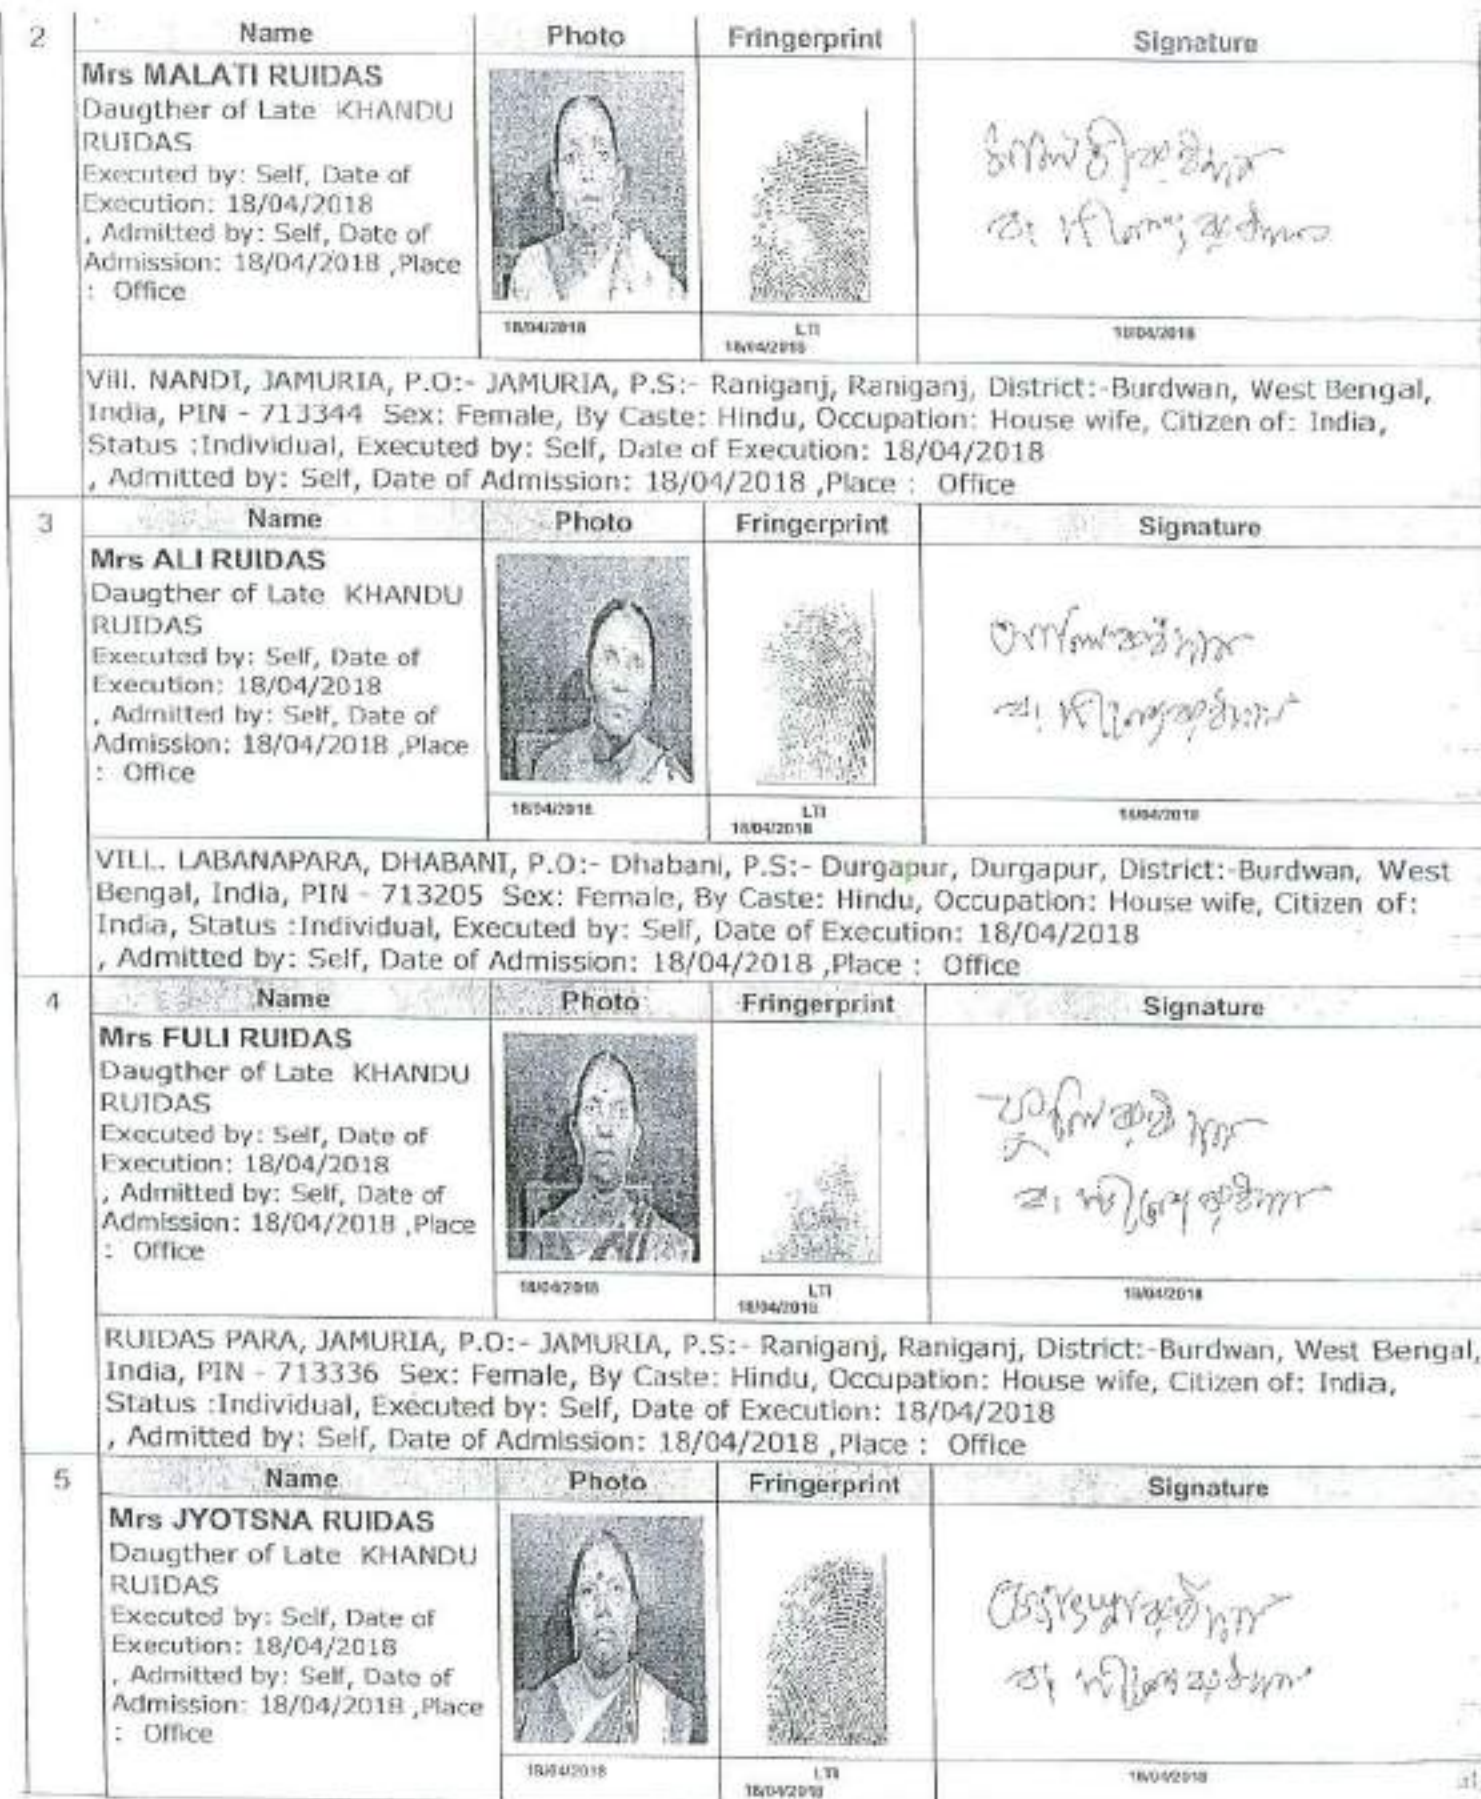 2
Name Photo Fringerprint Signature
Mrs MALATI RUIDAS
Daugther of Late KHANDU
RUIDAS
Executed by: Self, Date of
Execution: 18/04/2018
, Admitted by: Self, Date of
Admission: 18/04/2018 ,Place
: Office
18/04/2018
LTI
18/04/2018
18/04/2018
Vill. NANDI, JAMURIA, P.O:- JAMURIA, P.S:- Raniganj, Raniganj, District:-Burdwan, West Bengal,
India, PIN - 713344 Sex: Female, By Caste: Hindu, Occupation: House wife, Citizen of: India,
Status :Individual, Executed by: Self, Date of Execution: 18/04/2018
, Admitted by: Self, Date of Admission: 18/04/2018 ,Place : Office
3
Name Photo Fringerprint Signature
Mrs ALI RUIDAS
Daugther of Late KHANDU
RUIDAS
Executed by: Self, Date of
Execution: 18/04/2018
, Admitted by: Self, Date of
Admission: 18/04/2018 ,Place
: Office
18/04/2018
LTI
18/04/2018
18/04/2018
VILL. LABANAPARA, DHABANI, P.O:- Dhabani, P.S:- Durgapur, Durgapur, District:-Burdwan, West
Bengal, India, PIN - 713205 Sex: Female, By Caste: Hindu, Occupation: House wife, Citizen of:
India, Status :Individual, Executed by: Self, Date of Execution: 18/04/2018
, Admitted by: Self, Date of Admission: 18/04/2018 ,Place : Office
4
Name Photo Fringerprint Signature
Mrs FULI RUIDAS
Daugther of Late KHANDU
RUIDAS
Executed by: Self, Date of
Execution: 18/04/2018
, Admitted by: Self, Date of
Admission: 18/04/2018 ,Place
: Office
18/04/2018
LTI
18/04/2018
18/04/2018
RUIDAS PARA, JAMURIA, P.O:- JAMURIA, P.S:- Raniganj, Raniganj, District:-Burdwan, West Bengal,
India, PIN - 713336 Sex: Female, By Caste: Hindu, Occupation: House wife, Citizen of: India,
Status :Individual, Executed by: Self, Date of Execution: 18/04/2018
, Admitted by: Self, Date of Admission: 18/04/2018 ,Place : Office
5
Name Photo Fringerprint Signature
Mrs JYOTSNA RUIDAS
Daugther of Late KHANDU
RUIDAS
Executed by: Self, Date of
Execution: 18/04/2018
, Admitted by: Self, Date of
Admission: 18/04/2018 ,Place
: Office
18/04/2018
LTI
18/04/2018
18/04/2018